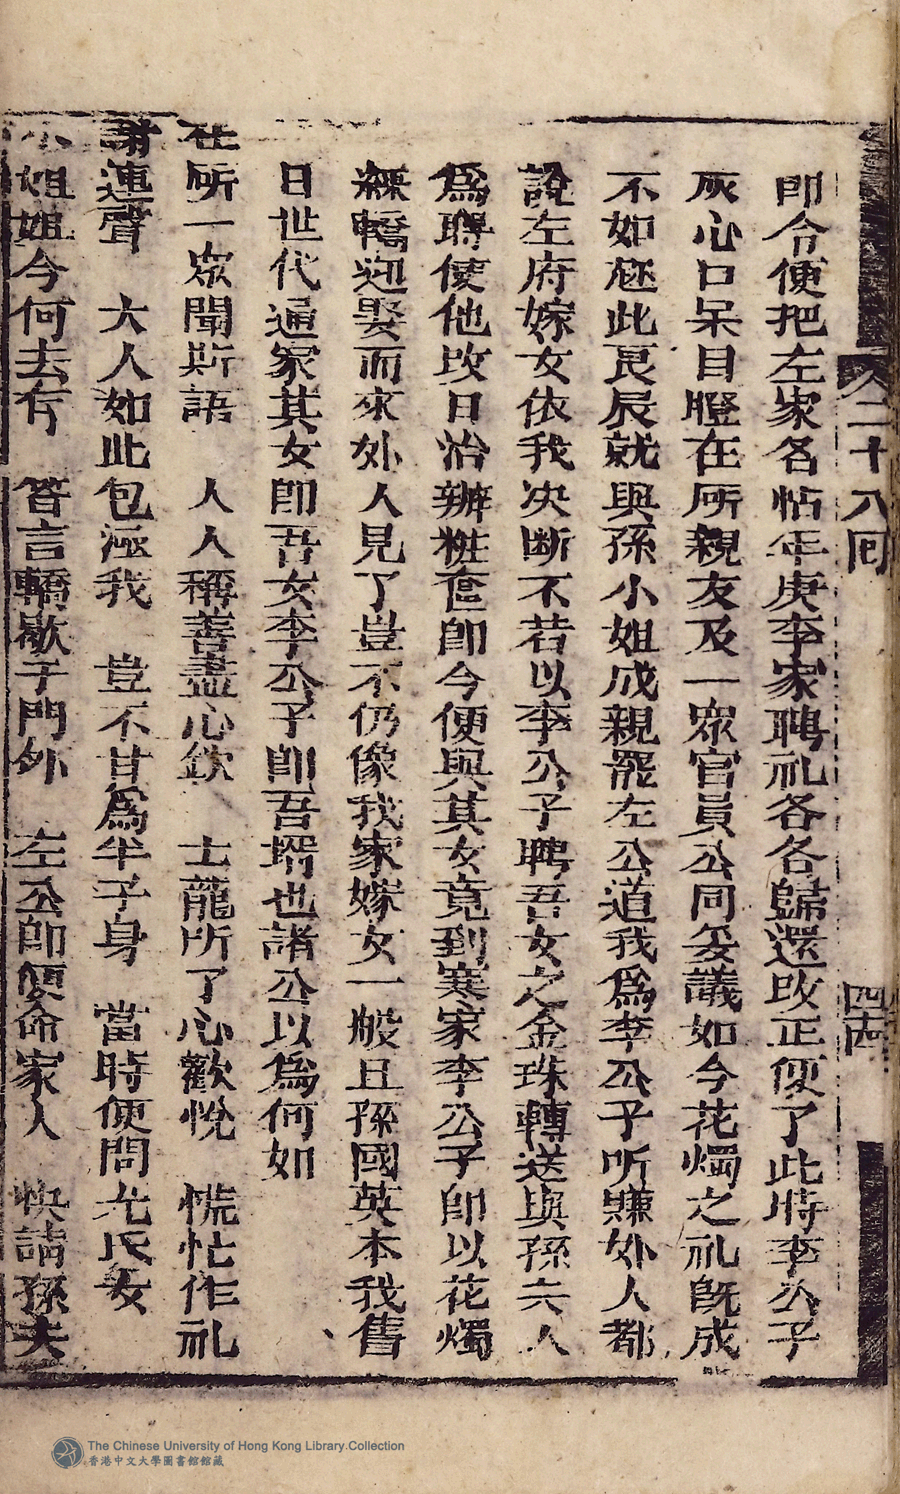 二十八回
四十四
即令便把左家各帖年庚李家聘礼各各歸還改正便了此時李公子
灰心口呆目瞪在所親友及一眾官員公同妥議如今花燭之礼既成
不如趂此良辰就與孫小姐成親罷左公道我為李公子所賺外人都
說左府嫁女依我决断不若以李公子聘吾女之金珠轉送與孫六人
為聘使他改日治辦粧奩即今便與其女竟到寒家李公子即以花燭
轎迎娶而來外人見了豈不仍像我家嫁女一般且孫國英本我舊
日世代通家其女即吾女李公子即吾壻也諸公以為何如
在所一眾聞斯語　人人稱善盡心欽　士龍所了心歡悅　慌忙作礼
謝連聲　大人如此包涵我　豈不甘為半子身　當時便問尤氏女
小姐姐今何去存　答言轎歇于門外　左公即便命家人　快請孫夫
The Chinese University of Hong Kong Library Collection
香港中文大學圖書館館藏